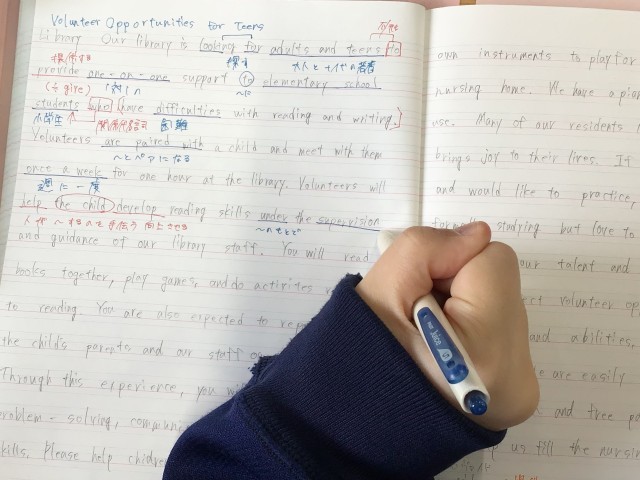 Volunteer Opportunities for Teens
不定詞
Library Our library is looking for adults and teens to
提供する 探す 大人と十代の若者
provide one-on-one support to elementary school
(= give) 1対1 ~に
students who have difficulties with reading and writing.
小学生 関係代名詞 困難
Volunteers are paired with a child and meet with them
~とペアになる
once a week for one hour at the library. Volunteers will
週に一度
help the child develop reading skills under the supervision
人が~するのを手伝う 向上させる ~のもとで
and guidance of our library staff. You will read
books together, play games, and do activities
to reading. You are also expected to
the child's parents and our staff
Through this experience, you
problem-solving,
skills. Please help
own instruments to play for
nursing home. We have a
use. Many of our residents
brings joy to their lives. If
and would like to practice,
studying but love to
our talent and
volunteer
and abilities,
are easily
and free
us fill the